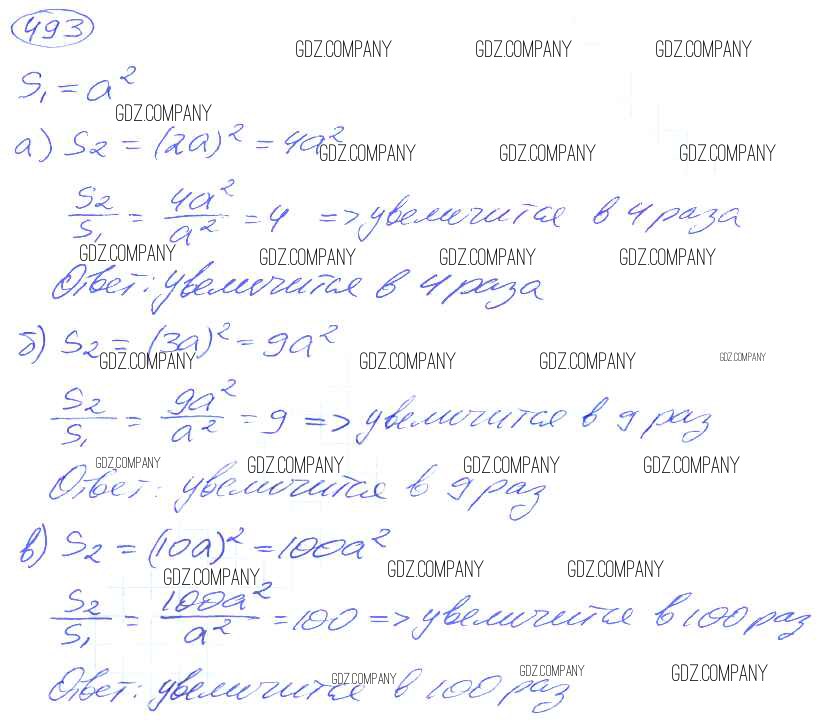 493
GDZ.COMPANY GDZ.COMPANY GDZ.COMPANY
S₁ = a²
GDZ.COMPANY
а) S₂ = (2a)² = 4a²
GDZ.COMPANY GDZ.COMPANY GDZ.COMPANY
S₂/S₁ = 4a²/a² = 4 => увеличится в 4 раза
GDZ.COMPANY GDZ.COMPANY GDZ.COMPANY GDZ.COMPANY
Ответ: увеличится в 4 раза
б) S₂ = (3a)² = 9a²
GDZ.COMPANY GDZ.COMPANY GDZ.COMPANY GDZ.COMPANY
S₂/S₁ = 9a²/a² = 9 => увеличится в 9 раз
GDZ.COMPANY GDZ.COMPANY GDZ.COMPANY GDZ.COMPANY
Ответ: увеличится в 9 раз
в) S₂ = (10a)² = 100a²
GDZ.COMPANY GDZ.COMPANY GDZ.COMPANY
S₂/S₁ = 100a²/a² = 100 => увеличится в 100 раз
GDZ.COMPANY GDZ.COMPANY GDZ.COMPANY
Ответ: увеличится в 100 раз